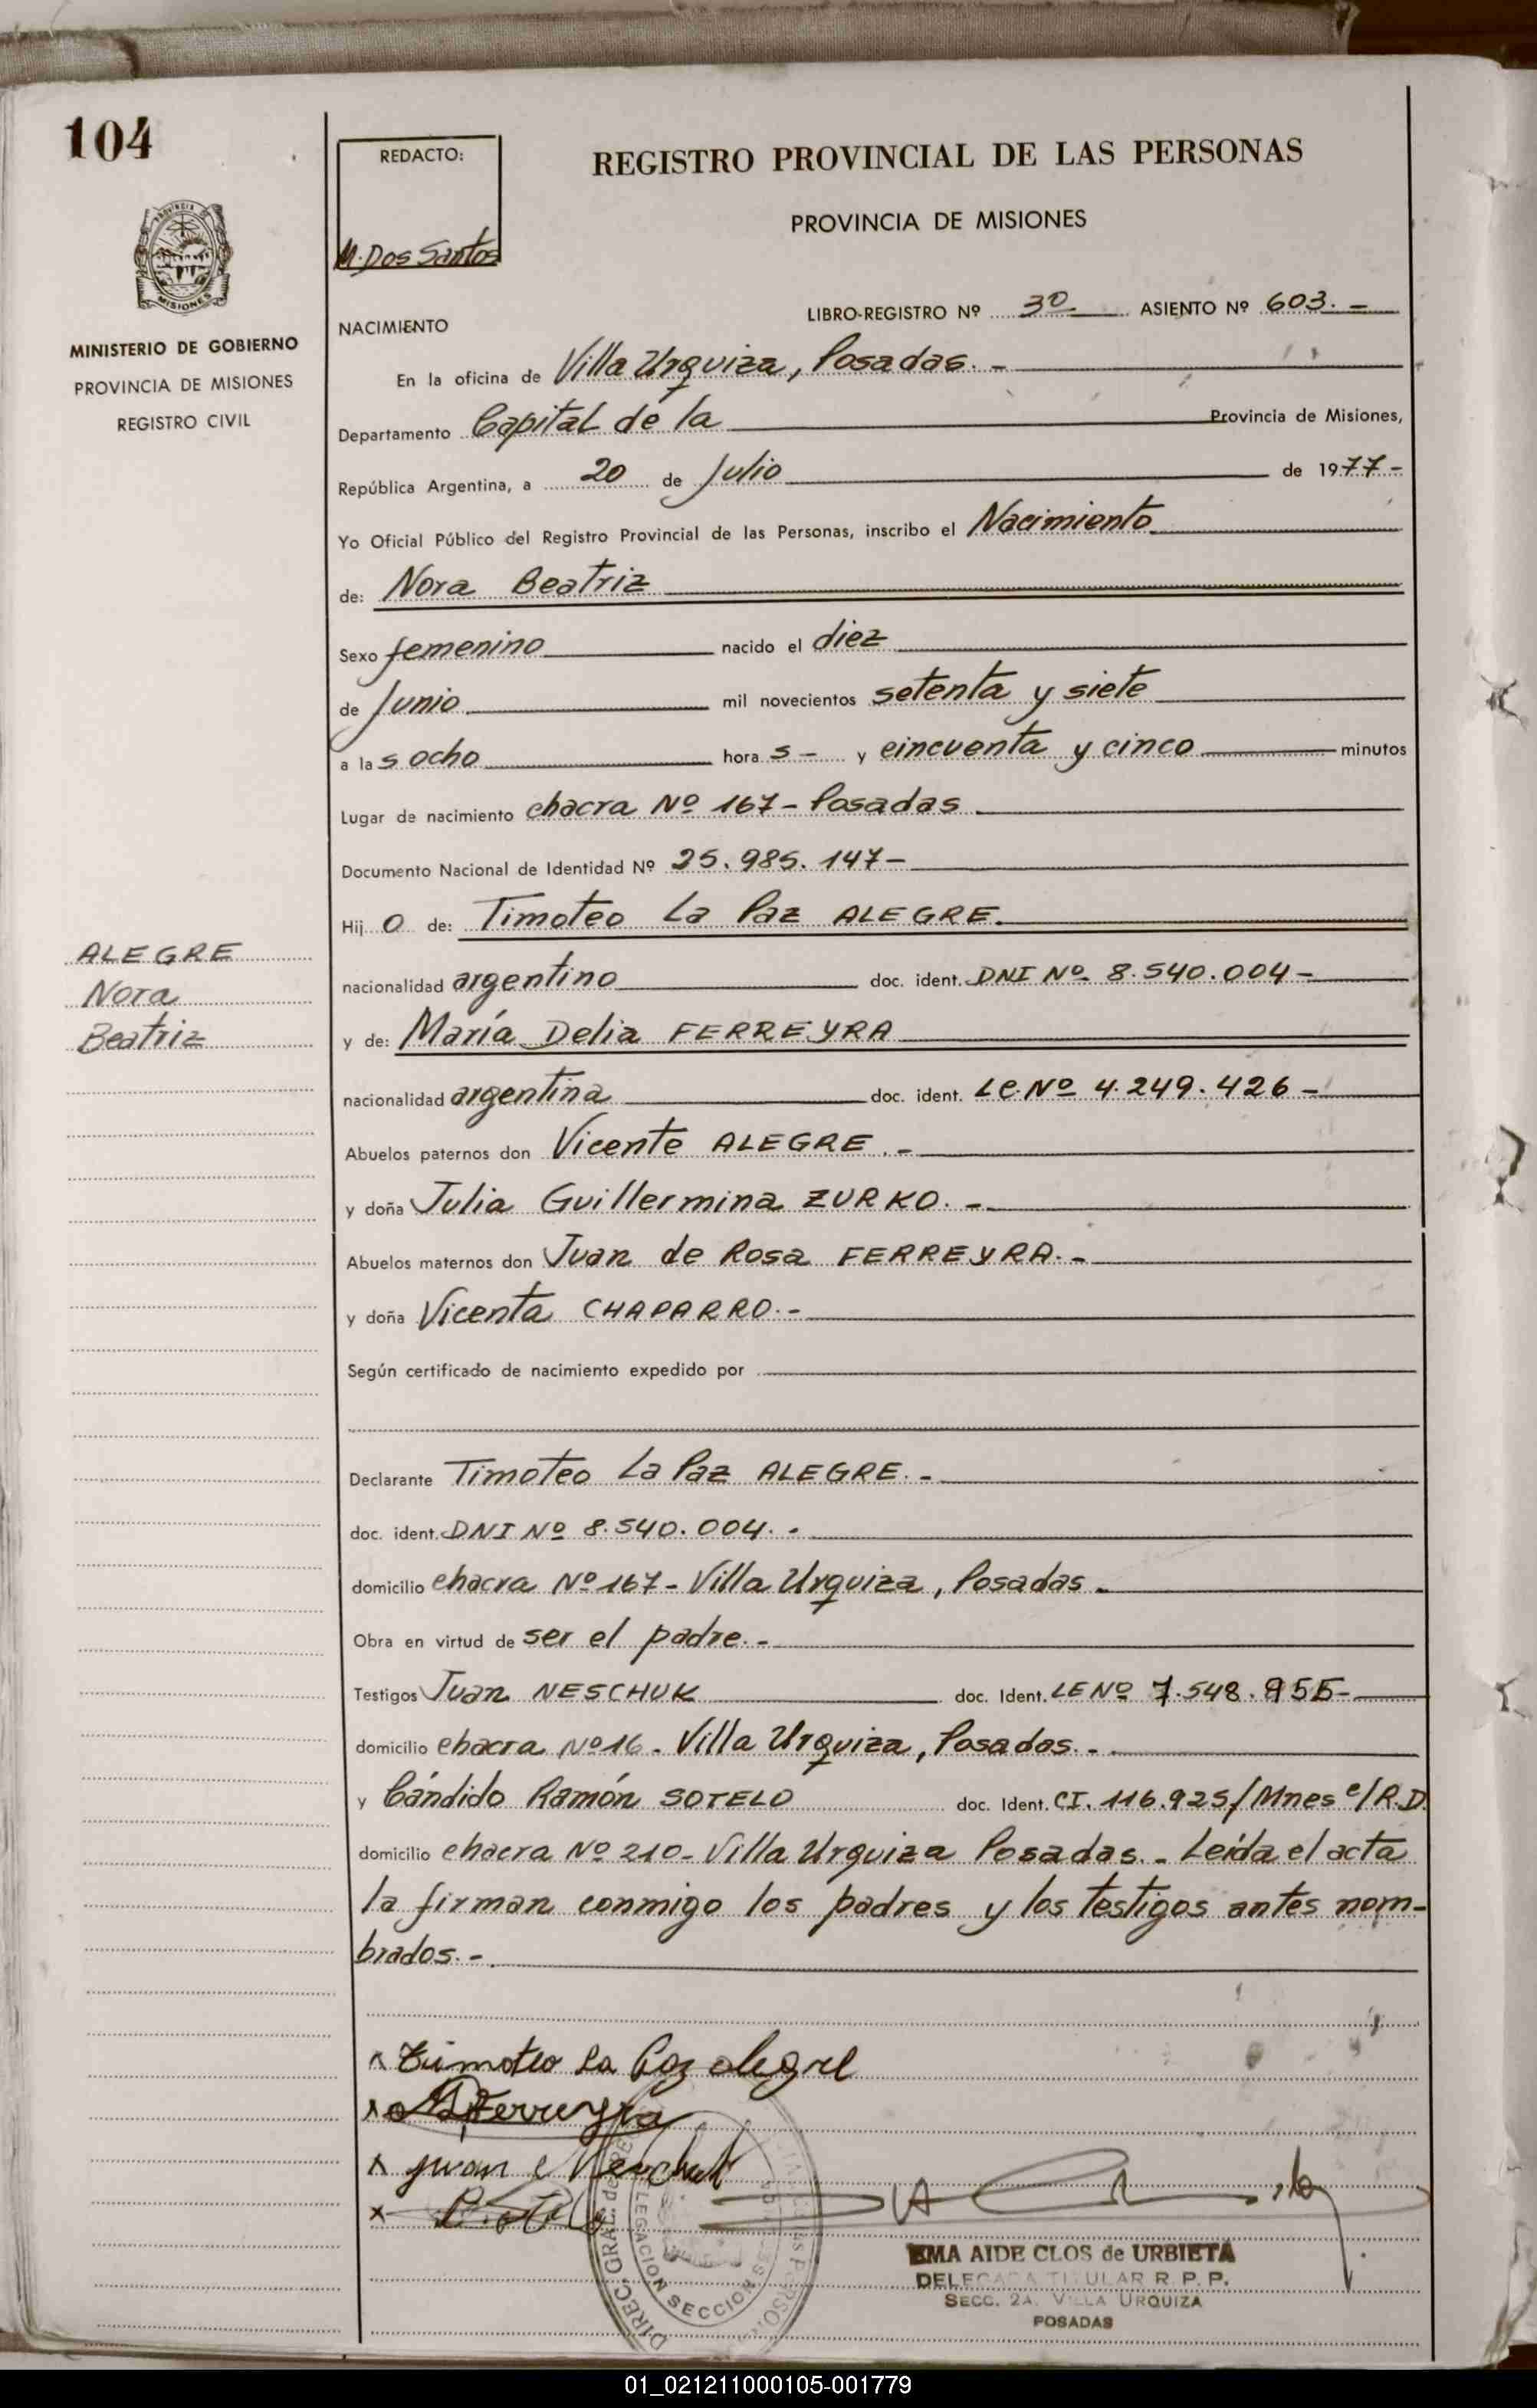 104
REDACTO:
M. Dos Santos
REGISTRO PROVINCIAL DE LAS PERSONAS
PROVINCIA DE MISIONES
MISIONES
MINISTERIO DE GOBIERNO
PROVINCIA DE MISIONES
REGISTRO CIVIL
LIBRO-REGISTRO Nº 3º ASIENTO Nº 603.-
NACIMIENTO
En la oficina de Villa Urquiza, Posadas.-
Departamento Capital de la Provincia de Misiones,
República Argentina, a 20 de Julio de 1977-
Yo Oficial Público del Registro Provincial de las Personas, inscribo el Nacimiento
de: Nora Beatriz
Sexo femenino nacido el diez
de Junio mil novecientos setenta y siete
a las ocho horas- y cincuenta y cinco minutos
Lugar de nacimiento chacra Nº 167- Posadas
Documento Nacional de Identidad Nº 25.985.147-
Hijo de: Timoteo La Paz ALEGRE.
ALEGRE
Nora
Beatriz
nacionalidad argentino doc. ident. DNI Nº 8.540.004-
y de: María Delia FERREYRA
nacionalidad argentina doc. ident. LC.Nº 4.249.426-
Abuelos paternos don Vicente ALEGRE.-
y doña Julia Guillermina ZURKO.-
Abuelos maternos don Juan de Rosa FERREYRA.-
y doña Vicenta CHAPARRO.-
Según certificado de nacimiento expedido por
Declarante Timoteo La Paz ALEGRE.-
doc. ident. DNI Nº 8.540.004.-
domicilio chacra Nº 167- Villa Urquiza, Posadas.
Obra en virtud de ser el padre.-
Testigos Juan NESCHUK doc. Ident. LE Nº 7.548.955-
domicilio chacra Nº 16. Villa Urquiza, Posadas.-
y Cándido Ramón SOTELO doc. Ident. CI. 116.925/Mnes e/R.D.
domicilio chacra Nº 210- Villa Urquiza Posadas.- Leída el acta
la firman conmigo los padres y los testigos antes nom-
brados.-
x Timoteo La Paz alegre
x Ferreyra
x Juan Neschuk
x
DIREC. GRAL. de
DELEGACION SECCION
EMA AIDE CLOS de URBIETA
DELEGADA TITULAR R. P. P.
SECC. 2A. VILLA URQUIZA
POSADAS
01_021211000105-001779